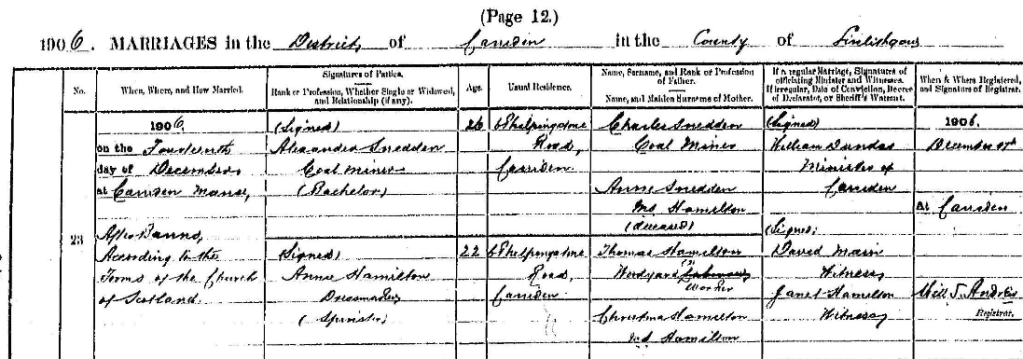 (Page 12.)
1906. MARRIAGES in the District of Carriden in the County of Linlithgow
No.
When, Where, and How Married.
Signatures of Parties.
Rank or Profession, Whether Single or Widowed, and Relationship (if any).
Age.
Usual Residence.
Name, Surname, and Rank or Profession of Father.
Name, and Maiden Surname of Mother.
If a regular Marriage, Signatures of officiating Minister and Witnesses.
If irregular, Date of Conviction, Decree of Declarator, or Sheriff's Warrant.
When & Where Registered, and Signature of Registrar.
23
1906
on the Fourteenth
day of December
at Carriden Manse,
After Banns,
According to the
Forms of the Church
of Scotland.
(Signed)
Alexander Snedden
Coal miner
(Bachelor)
(Signed)
Annie Hamilton
Dressmaker
(Spinster)
26
22
Road,
Carriden
Road
Carriden
Charles Snedden
Coal Miner
Annie Snedden
Ms Hamilton
(deceased)
Thomas Hamilton
Woodyard Labourer
Worker
Christina Hamilton
Ms Hamilton
(Signed)
William Dundas
Minister of
Carriden
(Signed)
David Main
Witness
Janet Hamilton
Witness
1906.
December 17th
At Carriden
Registrar.